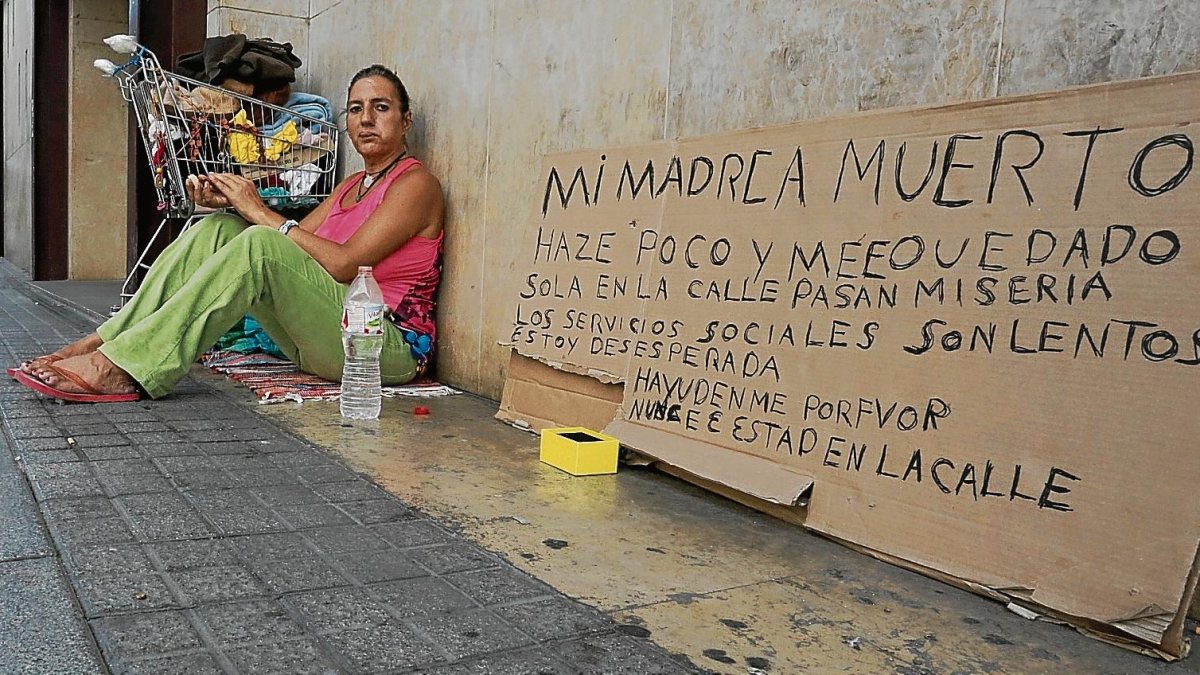 MI MADRCA MUERTO
HAZE POCO Y MÉEQUEDADO
SOLA EN LA CALLE PASAN MISERIA
LOS SERVICIOS SOCIALES SON LENTOS
ESTOY DESESPERADA
HAYUDENME PORFVOR
NUNCE E ESTAD EN LA CALLE